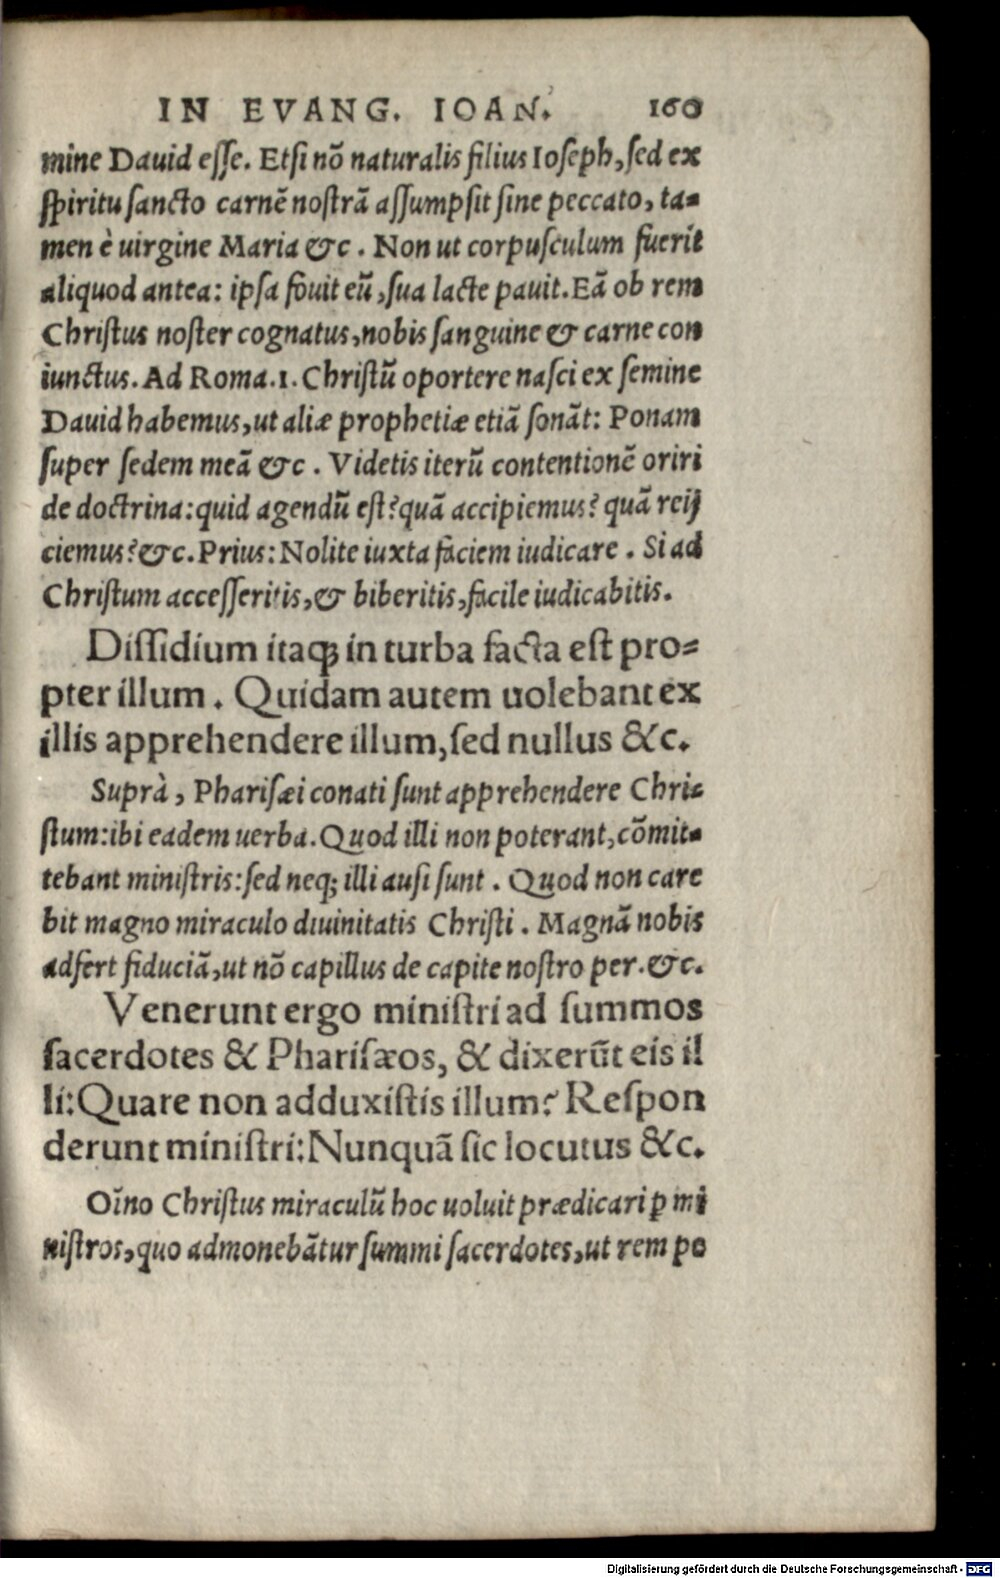 IN EVANG. IOAN. 160
mine Dauid esse. Etsi nõ naturalis filius Ioseph, sed ex
spiritu sancto carnẽ nostrã assumpsit sine peccato, ta-
men è uirgine Maria &c. Non ut corpusculum fuerit
aliquod antea: ipsa fouit eũ, sua lacte pauit. Eã ob rem
Christus noster cognatus, nobis sanguine & carne con
iunctus. Ad Roma.1. Christũ oportere nasci ex semine
Dauid habemus, ut aliæ prophetiæ etiã sonãt: Ponam
super sedem meã &c. Videtis iterũ contentionẽ oriri
de doctrina: quid agendũ est? quã accipiemus? quã reij
ciemus? &c. Prius: Nolite iuxta faciem iudicare. Si ad
Christum accesseritis, & biberitis, facile iudicabitis.
Dissidium itaq; in turba facta est pro-
pter illum. Quidam autem uolebant ex
illis apprehendere illum, sed nullus &c.
Suprà, Pharisæi conati sunt apprehendere Chri-
stum: ibi eadem uerba. Quod illi non poterant, cõmit-
tebant ministris: sed neq; illi ausi sunt. Quod non care
bit magno miraculo diuinitatis Christi. Magnã nobis
adfert fiduciã, ut nõ capillus de capite nostro per. &c.
Venerunt ergo ministri ad summos
sacerdotes & Pharisæos, & dixerũt eis il
li: Quare non adduxistis illum? Respon
derunt ministri: Nunquã sic locutus &c.
Oĩno Christus miraculũ hoc uoluit prædicari ꝑ mi
nistros, quo admonebãtur summi sacerdotes, ut rem po
Digitalisierung gefördert durch die Deutsche Forschungsgemeinschaft - DFG